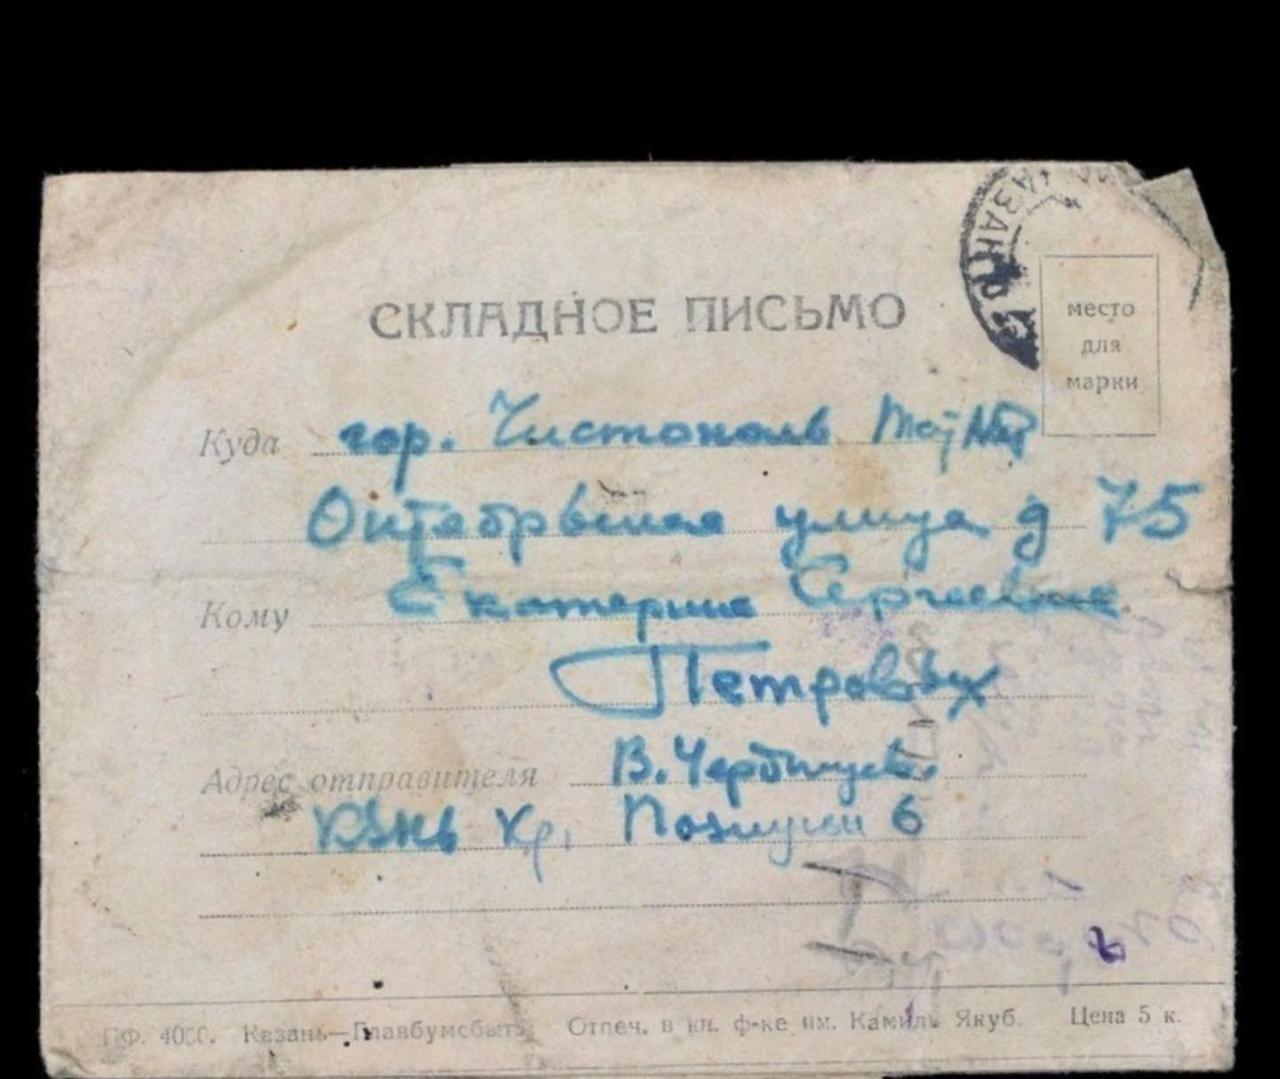 КАЗАНЬ
СКЛАДНОЕ ПИСЬМО
место
для
марки
Куда гор. Чистополь
Октябрьская улица д 75
Кому Екатерине Сергеевне
Петровых
Адрес отправителя В.
Кр. 6
ПФ. 4000. Казань—Главбумсбыть Отпеч. в кн. ф-ке им. Камиль Якуб. Цена 5 к.